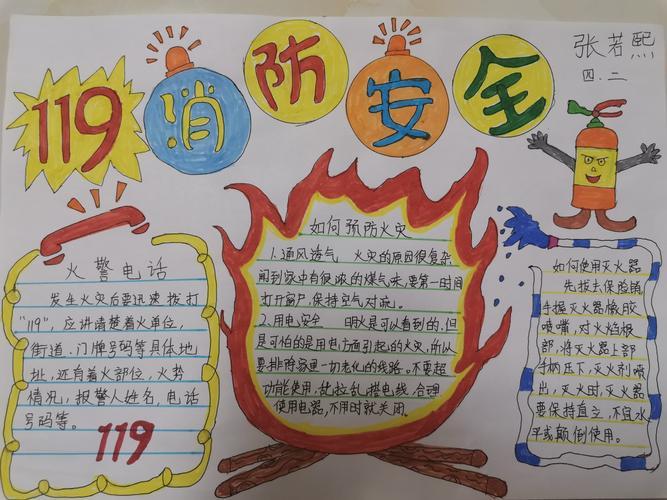 119消防安全
张若熙
四.二
火警电话
发生火灾后要迅速拨打
"119",应讲清楚着火单位,
街道.门牌号码等具体地
址,还有着火部位,火势
情况,报警人姓名,电话
号码等。
119
如何预防火灾
1.通风透气 火灾的原因很复杂
闻到家中有很浓的煤气味,要第一时间
打开窗户,保持空气对流。
2.用电安全 明火是可以看到的,但
是可怕的是用电方面引起的火灾,所以
要排除家里一切老化的线路,不要超
功能使用,乱拉乱搭电线,合理
使用电器,不用时就关闭。
如何使用灭火器
先拔去保险销
手握灭火器橡胶
喷嘴,对火焰根
部,将灭火器上部
手柄压下,灭火剂喷
出,灭火时,灭火器
要保持直立,不宜水
平或颠倒使用。